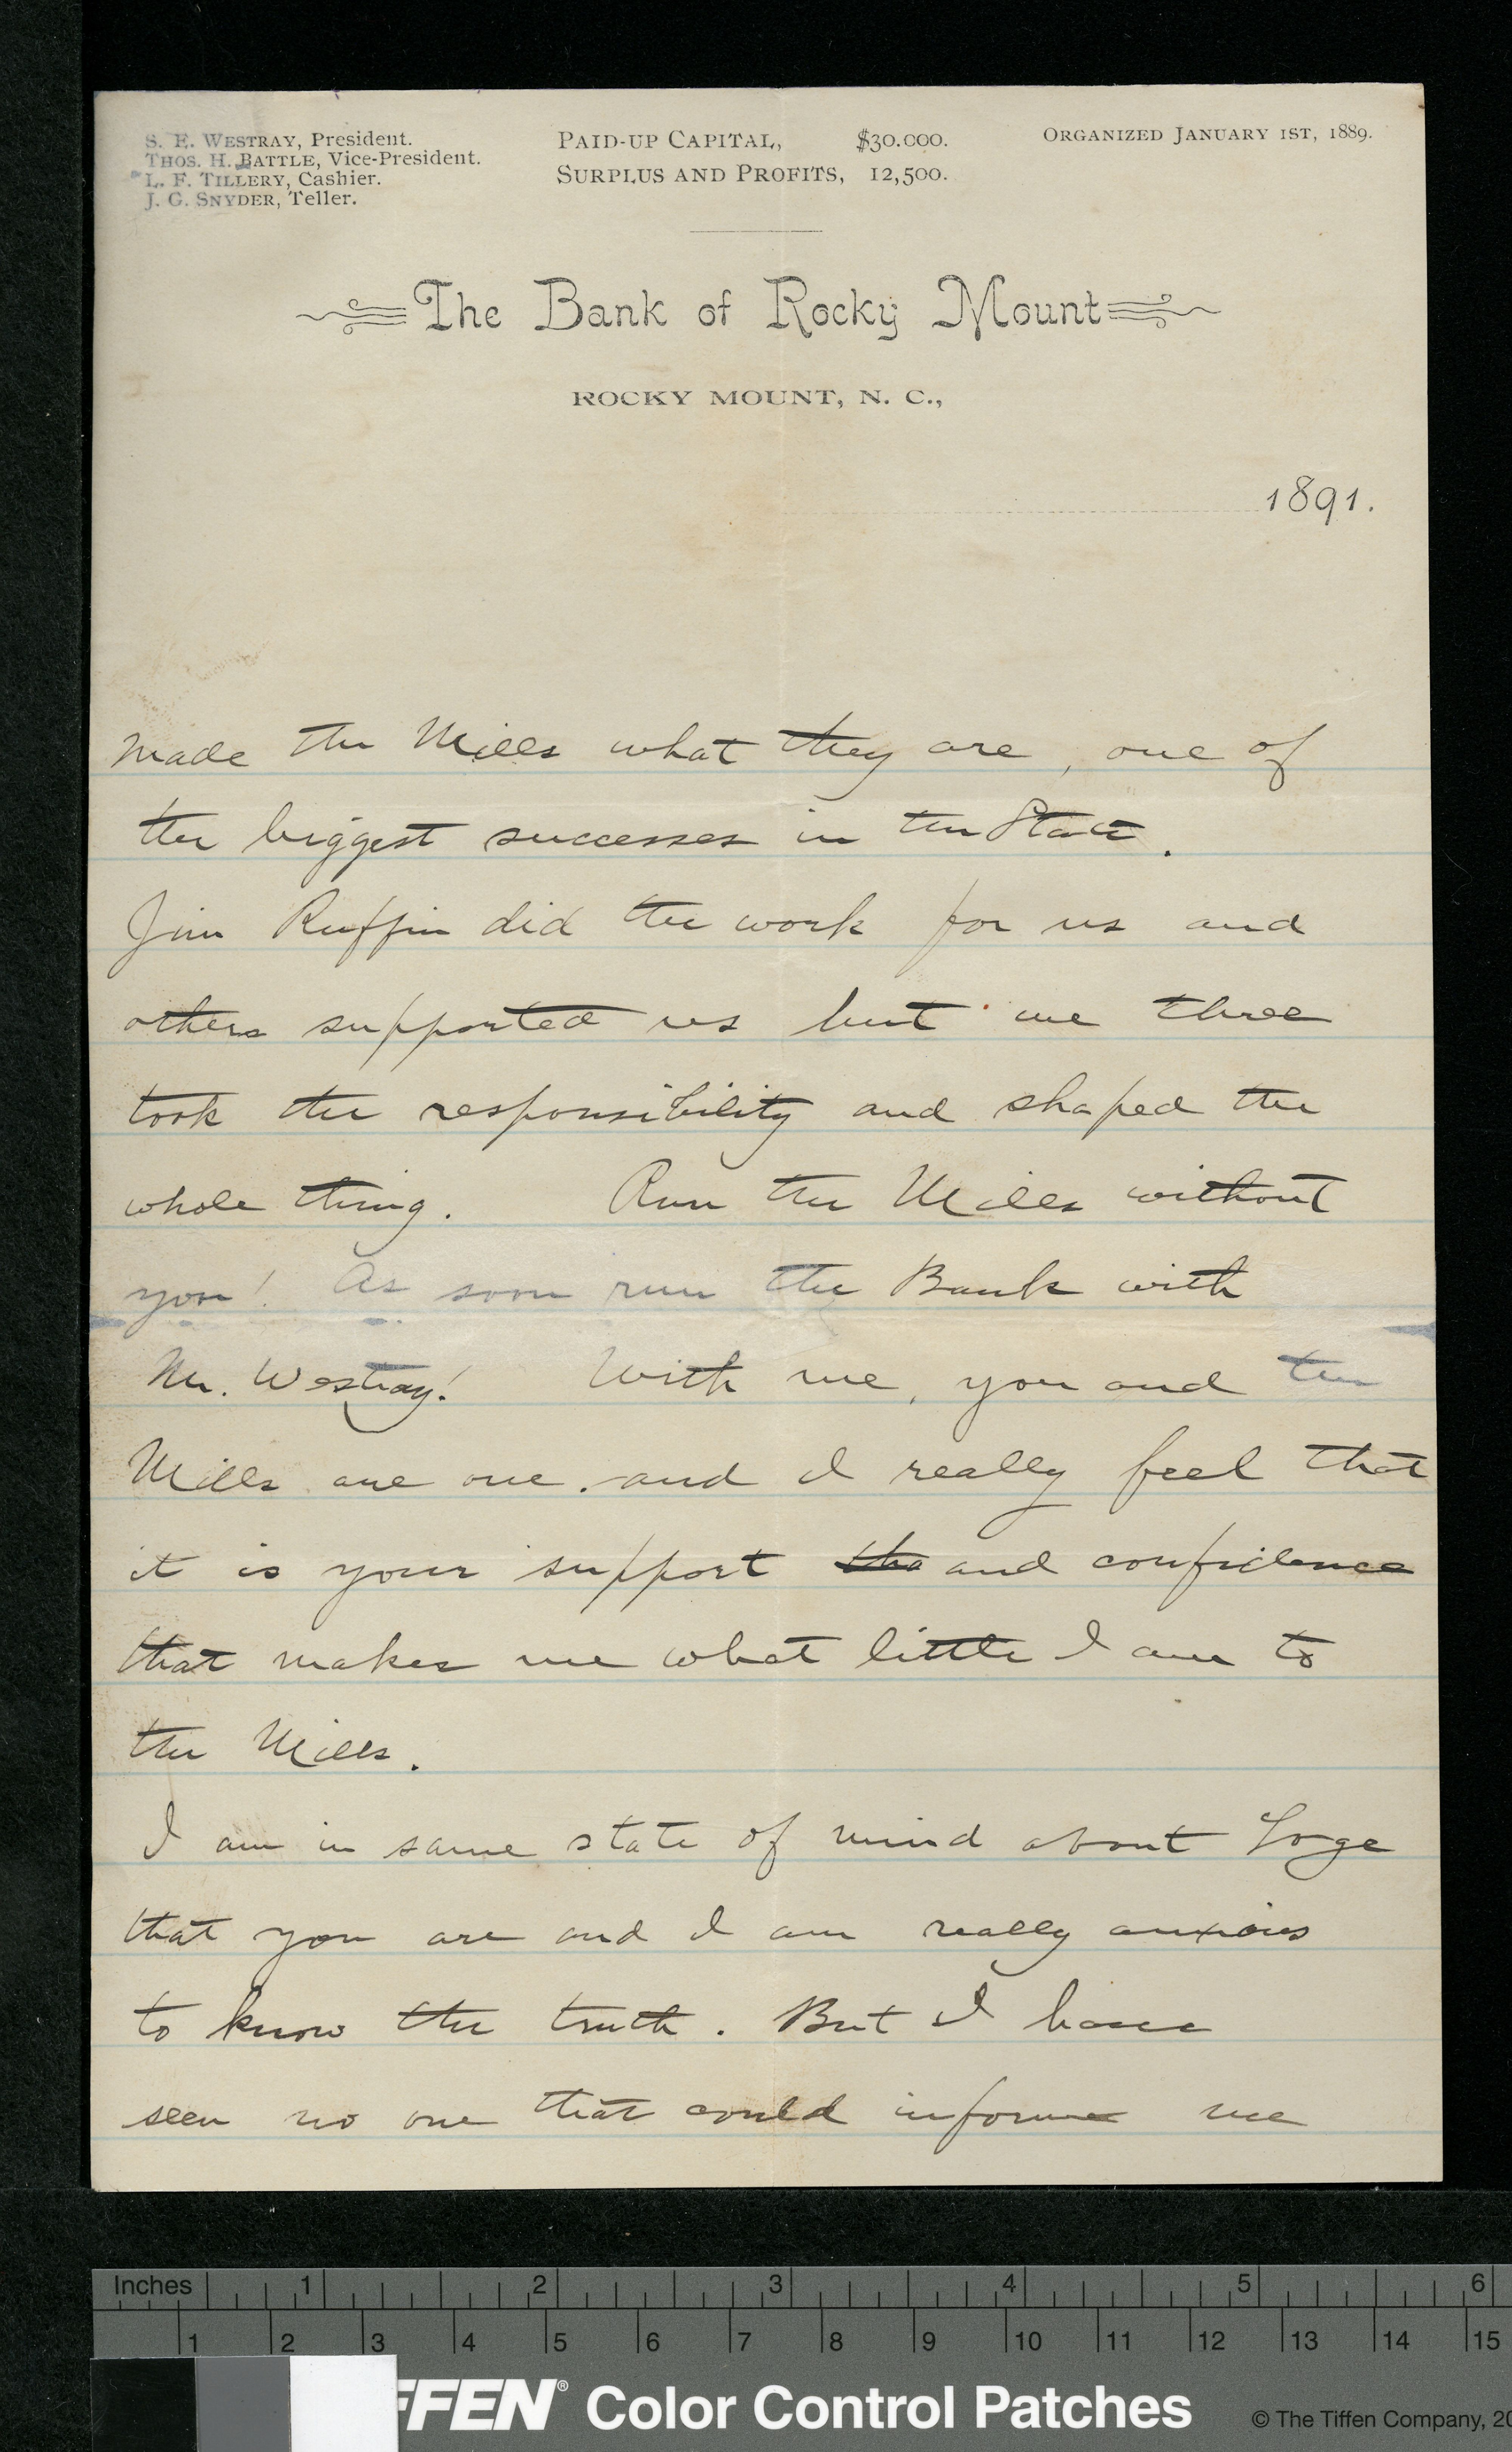 S. E. WESTRAY, President.
THOS. H. BATTLE, Vice-President.
L. F. TILLERY, Cashier.
J. G. SNYDER, Teller.
PAID-UP CAPITAL, $30.000.
SURPLUS AND PROFITS, 12,500.
ORGANIZED JANUARY 1ST, 1889.
The Bank of Rocky Mount
ROCKY MOUNT, N. C.,
1891.
made the Mills what they are, one of
the biggest successes in the State.
Jim Ruffin did the work for us and
others supported us but we three
took the responsibility and shaped the
whole thing. Run the Mills without
you! As soon run the Bank with
Mr. Westray! With me, you and the
Mills are one. and I really feel that
it is your support tha and confidence
that makes me what little I am to
the Mills.
I am in same state of mind about
that you are and I am really anxious
to know the truth. But I have
seen no one that could inform me
Inches 1 2 3 4 5 6
1 2 3 4 5 6 7 8 9 10 11 12 13 14 15
FFEN® Color Control Patches
© The Tiffen Company, 20